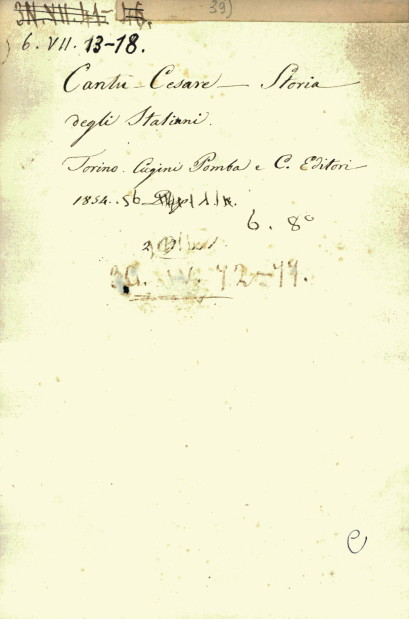 39)
6. VII. 13-18.
Cantu Cesare — Storia
degli Italiani.
Torino. Cugini Pomba e C. Editori
1854. 56
6. 8°
30. 72-77.
e